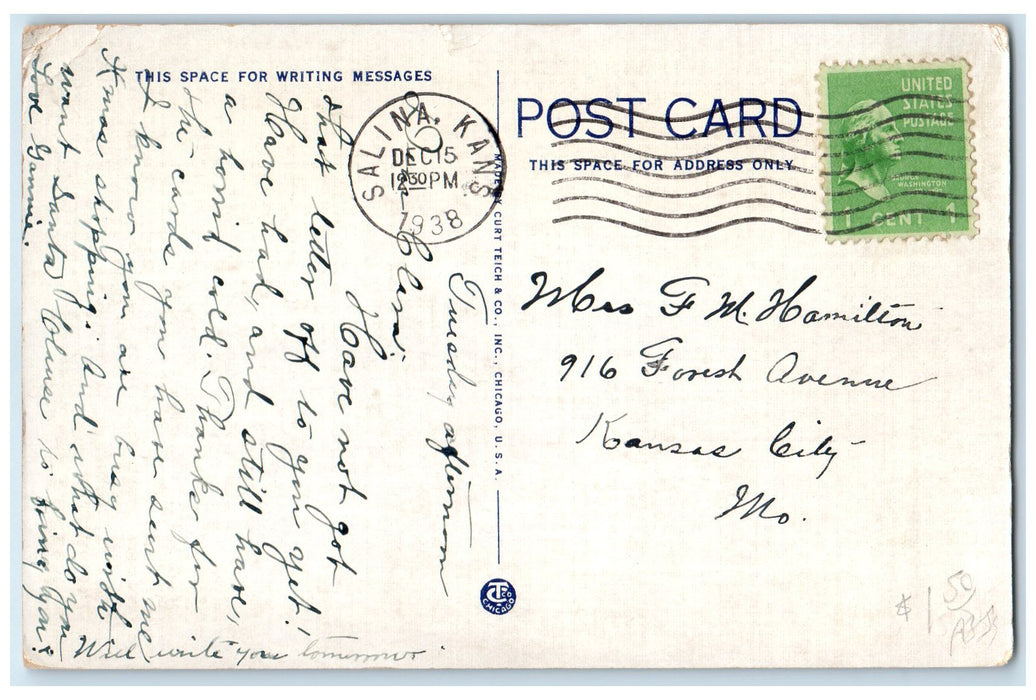 THIS SPACE FOR WRITING MESSAGES
Tuesday afternoon
Clara:
Have not got
that letter off to you yet!
Have had, and still have,
a horrid cold. Thanks for
the cards you have sent me
I know you are busy with
Xmas shopping. And what do you
want Santa Claus to bring you?
Love Gammie.
Will write you tomorrow
SALINA, KANS.
DEC 15
12 30 PM
1938
MADE BY CURT TEICH & CO., INC., CHICAGO, U.S.A.
CT CO
CHICAGO
POST CARD
THIS SPACE FOR ADDRESS ONLY
UNITED
STATES
POSTAGE
GEORGE
WASHINGTON
1 CENT 1
Mrs F M. Hamilton
916 Forest Avenue
Kansas City
Mo.
$1 50